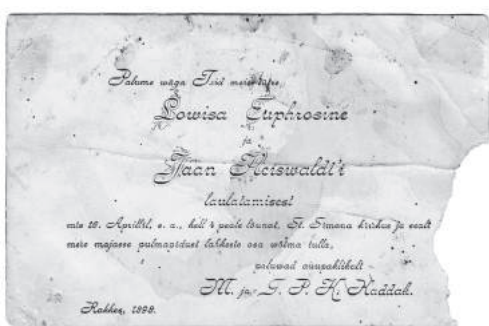 Palume wäga Teid meie tütre
Lowisa Euphrosine
ja
Jaan Reiswaldt'i
laulatamisest
mis 26. Aprillil, s. a., kell 4 peale lõunat, St. Simona kirikus ja sealt
meie majasse pulmapidust lahkeste osa wõtma tulla,
paluwad auupaklikult
M. ja G. P. K. Kaddak.
Rakkes, 1898.